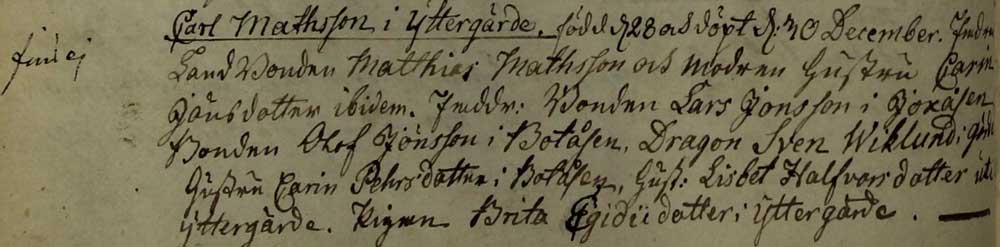 Carl Mathsson i Yttergärde. född d 28 och döpt d: 30 December.
finns ej
Land Bonden Matthias Mathsson och Modren Hustru Carin
Jönsdotter ibidem. Faddr: Bonden Lars Jonsson i
Bonden Olof Jönsson i Botåsen, Dragon Sven Wiklund i
Hustru Carin Pehrsdotter i Botåsen, Hust: Lisbet Halfvorsdotter uti
Yttergärde. Pigan Brita Egidii dotter i Yttergärde.